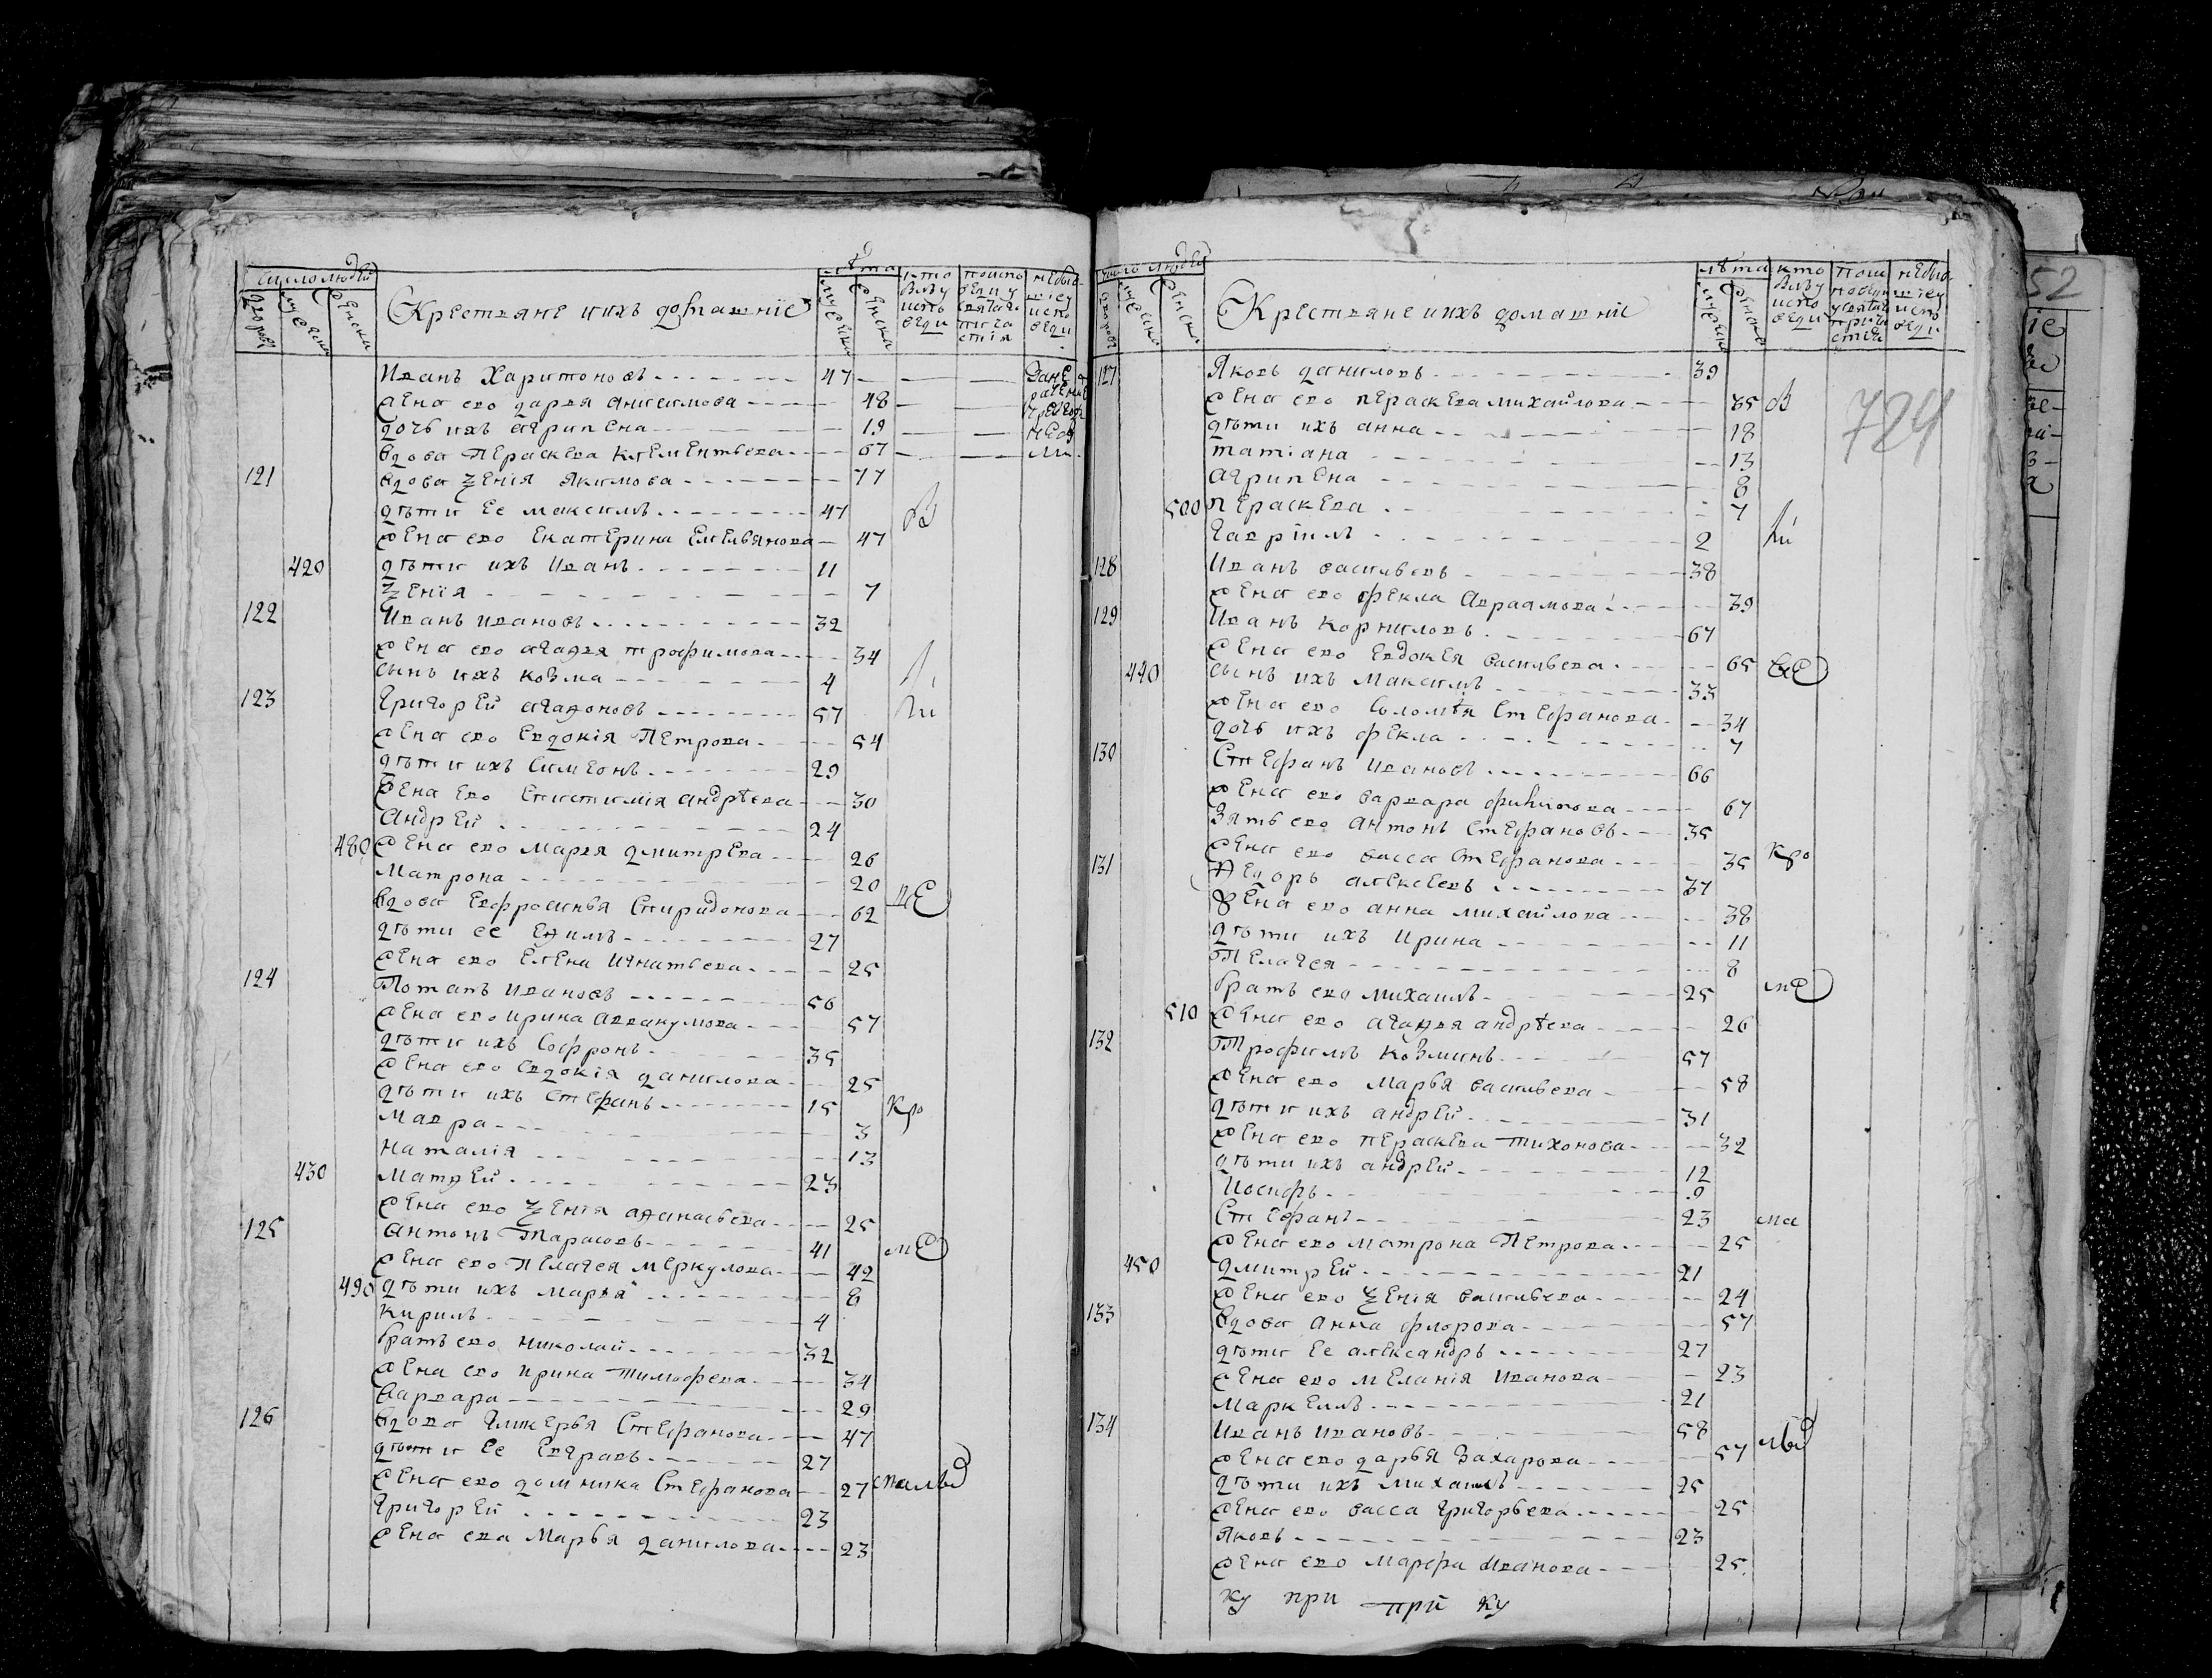 число людей
дворовъ
мужеска
женска
Крестьяне и ихъ домашніе
лѣта
мужеска
женска
кто былъ у исповеди
по исповеди у святаго причастия
не бывшіеу исповеди
Иванъ Харитоновъ 47
жена ево дарья анисимова 48
дочь ихъ агрипена 19
вдова Пераскева клементьева 67
121 вдова Ѯенія Якимова 77
дѣти ее максимъ 47
жена ево Екатерина Емельянова 47
420 дѣти ихъ Иванъ 11
Ѯенія 7
122 Иванъ ивановъ 32
жена ево агаѳья трофимова 34
сынъ ихъ козма 4
123 Григорей агаѳоновъ 57
жена ево Евдокія Петрова 54
дѣти ихъ Симеонъ 29
жена Ево Епистимія андрѣева 30
Андрей 24
480 жена ево Марья дмитрева 26
Матрона 20
вдова Ефросинья Спиридонова 62
дѣти ее Еѳимъ 27
жена ево Елена Игнатьева 25
124 Потапъ ивановъ 56
жена ево ирина аввакумова 57
дѣти ихъ Софронъ 35
жена ево Евдокія данилова 25
дѣти ихъ Стефанъ 15
Мавра 3
Наталія 13
430 Матѳей 23
жена ево Ѯенія аѳанасьева 25
125 Антонъ Тарасовъ 41
жена ево Пелагея меркулова 42
490 дѣти ихъ марья 8
Кирилъ 4
братъ ево николай 32
жена ево ирина тимофева 34
Варвара 29
126 вдова Гликерья Стефанова 47
дѣти ее Евграфъ 27
жена ево домника Стефанова 27
Григорей 23
жена ева Марья данилова 23
число людей
дворовъ
мужеска
женска
Крестьяне и ихъ домашніе
лѣта
мужеска
женска
кто былъ у исповеди
724
127 Яковъ даниловъ 39
жена ево пераскева михайлова 35
дѣти ихъ анна 18
татіана 13
агрипена 8
500 пераскева 7
гавріилъ 2
128 Иванъ васильевъ 38
жена ево фекла авраамова 39
129 Иванъ корниловъ 67
жена ево Евдокея васильева 65
440 сынъ ихъ максимъ 33
жена ево Соломѣя Стефанова 34
дочь ихъ фекла 7
130 Стефанъ ивановъ 66
жена ево варвара филипова 67
Зять ево антонъ Стефановъ 35
жена ево васса Стефанова 35
131 Ѳедоръ алексеевъ 37
жена ево анна михайлова 38
дѣти ихъ Ирина 11
Пелагея 8
братъ ево михаилъ 25
510 жена ево агаѳья андрѣева 26
132 Трофимъ козминъ 57
жена ево Марья васильева 58
дѣти ихъ андрей 31
жена ево пераскева тихонова 32
дѣти ихъ андрей 12
Иосифъ 9
Стефанъ 23
жена ево матрона Петрова 25
450 дмитрей 21
жена ево Ѯенія васильева 24
133 вдова Анна флорова 57
дѣти ее александръ 27
жена ево меланія Иванова 23
Маркеллъ 21
134 Иванъ ивановъ 58
жена ево дарья Захарова 57
дѣти ихъ михаилъ 25
жена ево васса григорьева 25
Яковъ 23
жена ево марфа иванова 25
ку при при ку
52